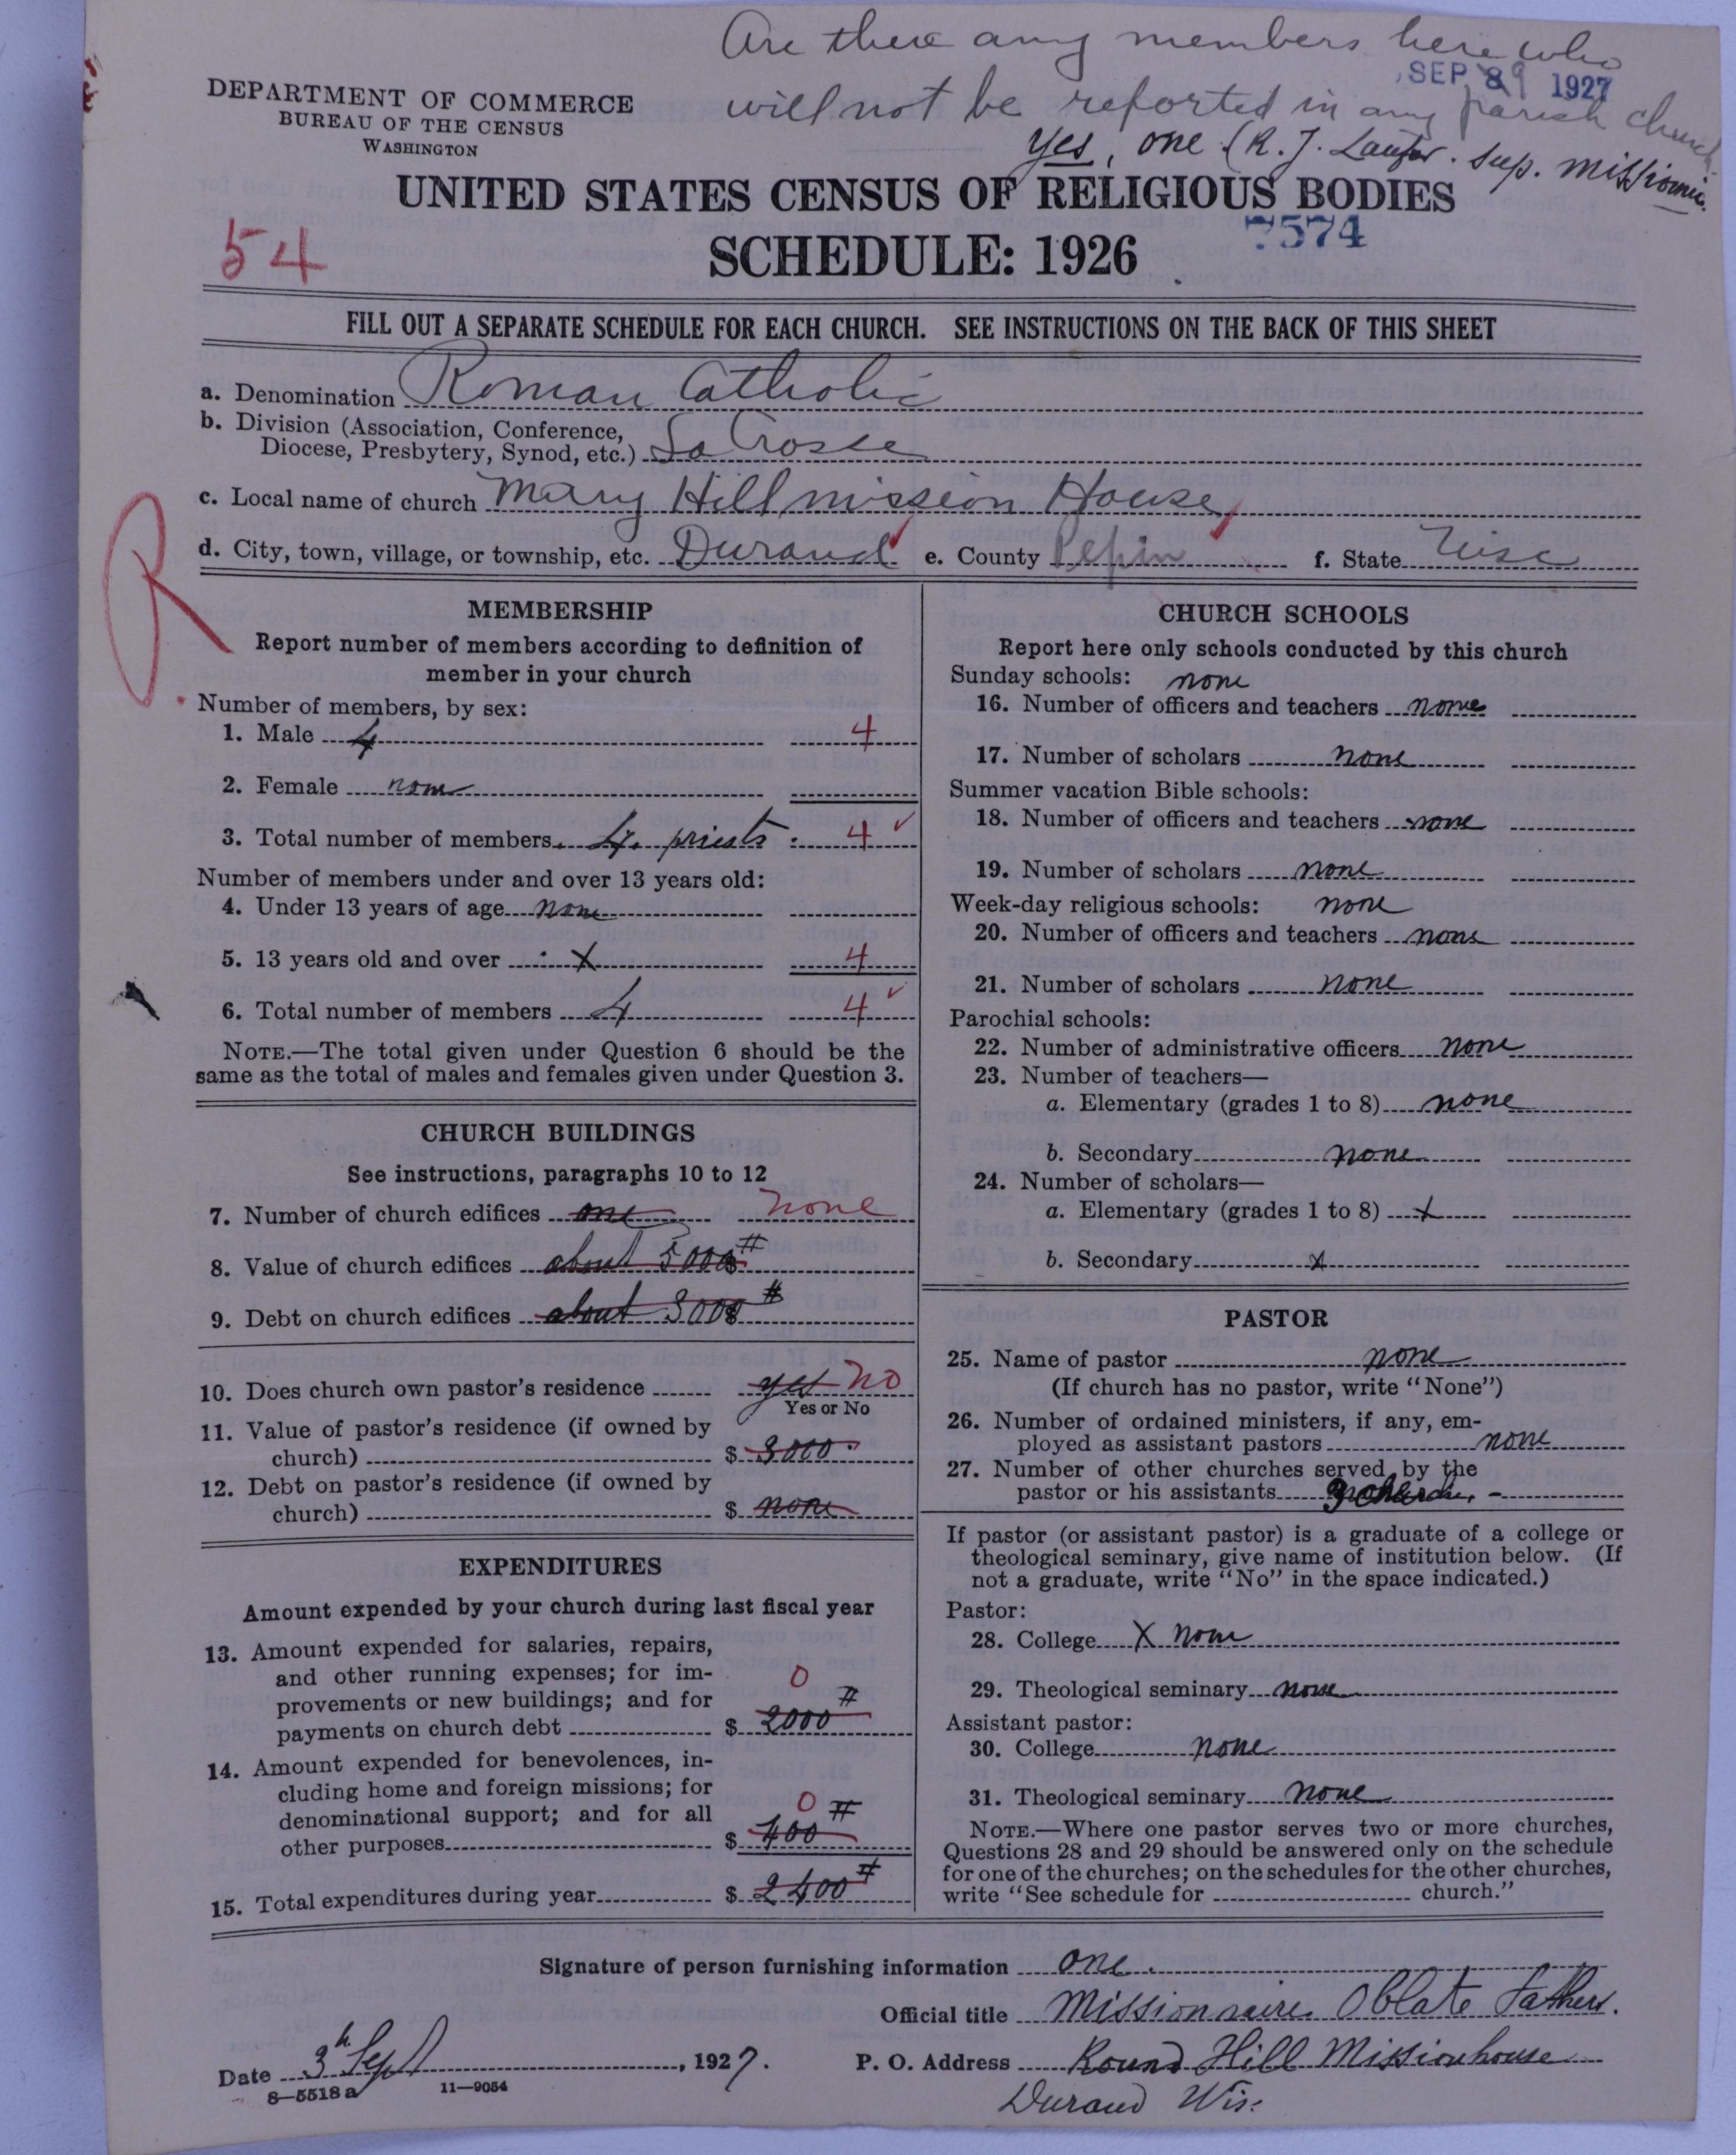 Are there any members here who
SEP 9 1927
will not be reported in any parish church
Yes, one (R. J. sup. missionnaire.
DEPARTMENT OF COMMERCE
BUREAU OF THE CENSUS
WASHINGTON
UNITED STATES CENSUS OF RELIGIOUS BODIES
7574
54
SCHEDULE: 1926
FILL OUT A SEPARATE SCHEDULE FOR EACH CHURCH. SEE INSTRUCTIONS ON THE BACK OF THIS SHEET
a. Denomination Roman Catholic
b. Division (Association, Conference,
Diocese, Presbytery, Synod, etc.) La Crosse
c. Local name of church Mary Hill mission House
d. City, town, village, or township, etc. Durand e. County Pepin f. State Wisc
R.
MEMBERSHIP
Report number of members according to definition of
member in your church
Number of members, by sex:
1. Male 4 4
2. Female none
3. Total number of members. 4. priests. 4 ✓
Number of members under and over 13 years old:
4. Under 13 years of age none
5. 13 years old and over X 4
6. Total number of members 4 4 ✓
NOTE.—The total given under Question 6 should be the
same as the total of males and females given under Question 3.
CHURCH BUILDINGS
See instructions, paragraphs 10 to 12
7. Number of church edifices one none
8. Value of church edifices about 5000 #
9. Debt on church edifices about 3000 #
10. Does church own pastor's residence yes No
Yes or No
11. Value of pastor's residence (if owned by
church) $ 3000.
12. Debt on pastor's residence (if owned by
church) $ none
EXPENDITURES
Amount expended by your church during last fiscal year
13. Amount expended for salaries, repairs,
and other running expenses; for im-
provements or new buildings; and for 0
payments on church debt $ 2000 #
14. Amount expended for benevolences, in-
cluding home and foreign missions; for
denominational support; and for all 0
other purposes $ 400 #
15. Total expenditures during year $ 2400 #
CHURCH SCHOOLS
Report here only schools conducted by this church
Sunday schools: none
16. Number of officers and teachers none
17. Number of scholars none
Summer vacation Bible schools:
18. Number of officers and teachers none
19. Number of scholars none
Week-day religious schools: none
20. Number of officers and teachers none
21. Number of scholars none
Parochial schools:
22. Number of administrative officers none
23. Number of teachers—
a. Elementary (grades 1 to 8) none
b. Secondary none
24. Number of scholars—
a. Elementary (grades 1 to 8) X
b. Secondary X
PASTOR
25. Name of pastor none
(If church has no pastor, write "None")
26. Number of ordained ministers, if any, em-
ployed as assistant pastors none
27. Number of other churches served by the
pastor or his assistants
If pastor (or assistant pastor) is a graduate of a college or
theological seminary, give name of institution below. (If
not a graduate, write "No" in the space indicated.)
Pastor:
28. College X none
29. Theological seminary none
Assistant pastor:
30. College none
31. Theological seminary none
NOTE.—Where one pastor serves two or more churches,
Questions 28 and 29 should be answered only on the schedule
for one of the churches; on the schedules for the other churches,
write "See schedule for church."
Signature of person furnishing information one.
Official title Missionnaire Oblate Fathers.
Date 3th Sept, 1927. P. O. Address Round Hill Missionhouse
8—5518a 11—9054
Durand Wis.